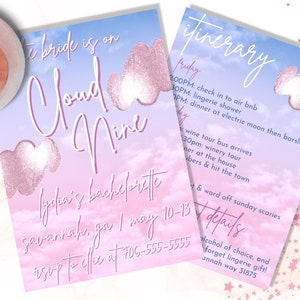 e bride is on
Cloud
Nine
lydia's bachelorette
savannah, ga / may 10-13
rsvp to ellie at 706-555-5555
itinerary
friday
:00PM: check in to air bnb
PM: lingerie shower
PM: dinner at electric moon then barsh
wine tour bus arrives
:30pm: winery tour
inner at the house
mbers & hit the town
st & ward off sunday scaries
t details
alcohol of choice, and
forget lingerie gift!
annah way 31875